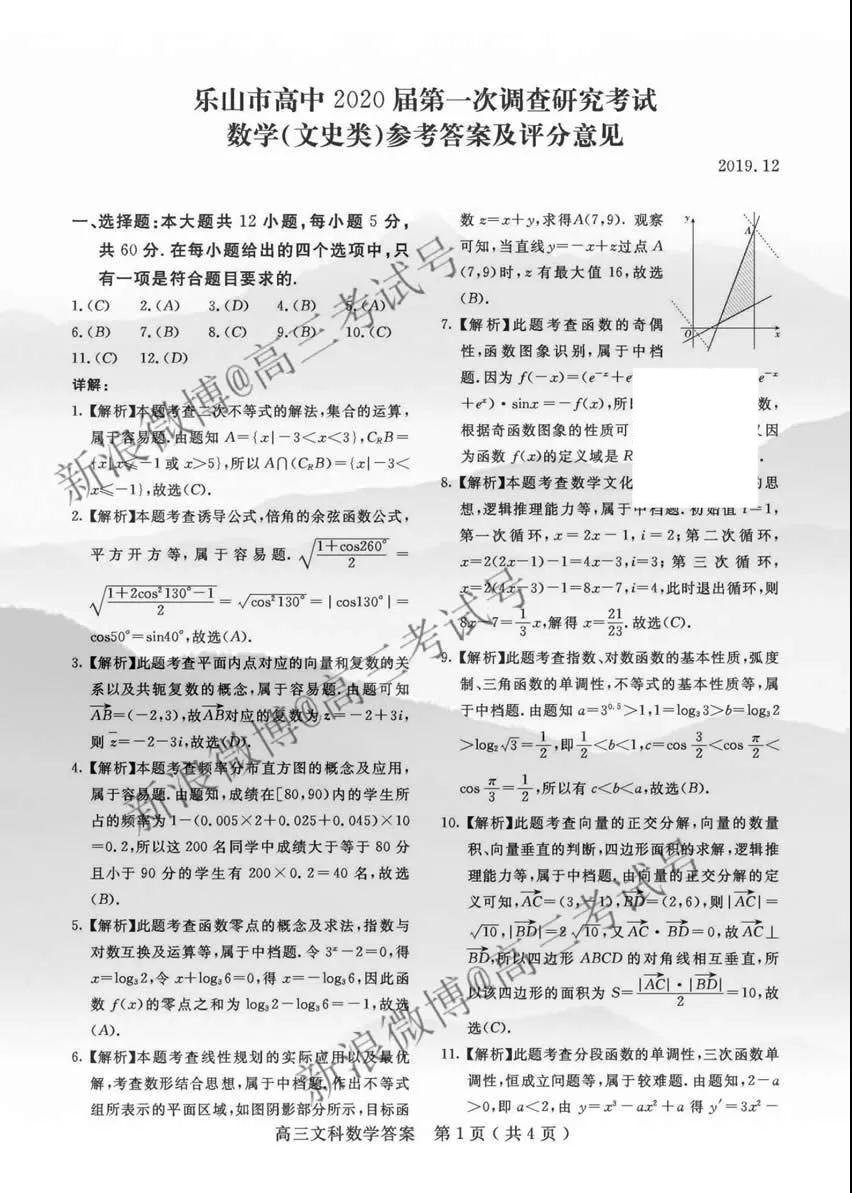 乐山市高中 2020 届第一次调查研究考试
数学(文史类)参考答案及评分意见
2019.12
一、选择题:本大题共 12 小题,每小题 5 分,
共 60 分.在每小题给出的四个选项中,只
有一项是符合题目要求的.
1.(C) 2.(A) 3.(D) 4.(B) 5.(A)
6.(B) 7.(B) 8.(C) 9.(B) 10.(C)
11.(C) 12.(D)
详解:
1.【解析】本题考查二次不等式的解法,集合的运算,
属于容易题.由题知 A={x|-3<x<3},C_RB=
{x|x≤-1 或 x>5},所以 A∩(C_RB)={x|-3<
x≤-1},故选(C).
2.【解析】本题考查诱导公式,倍角的余弦函数公式,
平方开方等,属于容易题.√((1+cos260°)/2) =
√((1+2cos²130°-1)/2) = √(cos²130°) = |cos130°| =
cos50°=sin40°,故选(A).
3.【解析】此题考查平面内点对应的向量和复数的关
系以及共轭复数的概念,属于容易题.由题可知
AB→=(-2,3),故AB→对应的复数为 z=-2+3i,
则 z̄=-2-3i,故选(D).
4.【解析】本题考查频率分布直方图的概念及应用,
属于容易题.由题知,成绩在[80,90)内的学生所
占的频率为 1-(0.005×2+0.025+0.045)×10
=0.2,所以这 200 名同学中成绩大于等于 80 分
且小于 90 分的学生有 200×0.2=40 名,故选
(B).
5.【解析】此题考查函数零点的概念及求法,指数与
对数互换及运算等,属于中档题.令 3ˣ-2=0,得
x=log₃2,令 x+log₃6=0,得 x=-log₃6,因此函
数 f(x)的零点之和为 log₃2-log₃6=-1,故选
(A).
6.【解析】本题考查线性规划的实际应用以及最优
解,考查数形结合思想,属于中档题.作出不等式
组所表示的平面区域,如图阴影部分所示,目标函
数 z=x+y,求得A(7,9). 观察
可知,当直线 y=-x+z过点 A
(7,9)时,z 有最大值 16,故选
(B).
y
A
O
x
7.【解析】此题考查函数的奇偶
性,函数图象识别,属于中档
题.因为 f(-x)=(e⁻ˣ+e e⁻ˣ
+eˣ)·sinx=-f(x),所 数,
根据奇函数图象的性质可 因
为函数 f(x)的定义域是 R .
8.【解析】本题考查数学文化 的思
想,逻辑推理能力等,属于中档题.初始值 i=1,
第一次循环,x=2x-1,i=2;第二次循环,
x=2(2x-1)-1=4x-3,i=3;第三次循环,
x=2(4x-3)-1=8x-7,i=4,此时退出循环,则
8x-7=1/3x,解得 x=21/23.故选(C).
9.【解析】此题考查指数、对数函数的基本性质,弧度
制、三角函数的单调性,不等式的基本性质等,属
于中档题.由题知 a=3^0.5>1,1=log₃3>b=log₃2
>log₃√3=1/2,即1/2<b<1,c=cos 3/2<cos π/2<
cos π/3=1/2,所以有 c<b<a,故选(B).
10.【解析】此题考查向量的正交分解,向量的数量
积、向量垂直的判断,四边形面积的求解,逻辑推
理能力等,属于中档题.由向量的正交分解的定
义可知,AC→=(3,-1),BD→=(2,6),则|AC→|=
√10,|BD→|=2√10,又AC→·BD→=0,故AC→⊥
BD→,所以四边形 ABCD 的对角线相互垂直,所
以该四边形的面积为 S=|AC→|·|BD→|/2=10,故
选(C).
11.【解析】此题考查分段函数的单调性,三次函数单
调性,恒成立问题等,属于较难题.由题知,2-a
>0,即 a<2,由 y=x³-ax²+a 得 y′=3x²-
高三文科数学答案 第 1 页(共 4 页)
新浪微博@高三考试号
新浪微博@高三考试号
新浪微博@高三考试号